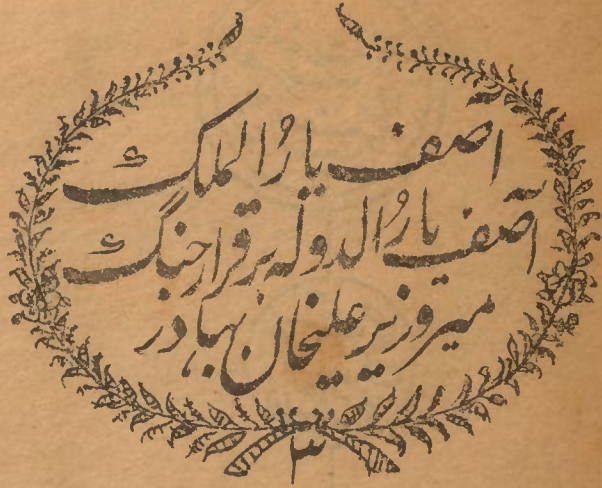 آصف یارُ الملک
آصف یارُ الدولہ برقرار جنگ
میر وزیر علیخان بہادر
۳